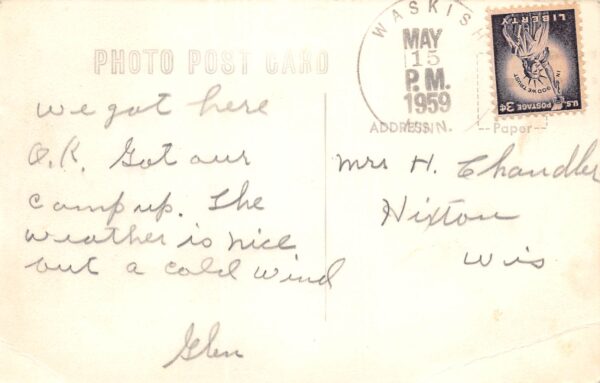 PHOTO POST CARD
WASKISH
MAY
15
P.M.
1959
MINN.
U.S. POSTAGE 3¢
IN GOD WE TRUST
LIBERTY
ADDRESS
--Paper--
we got here
O.K. Got our
camp up. The
weather is nice
but a cold wind
Glen
Mrs H. Chandler
Hixton
Wis